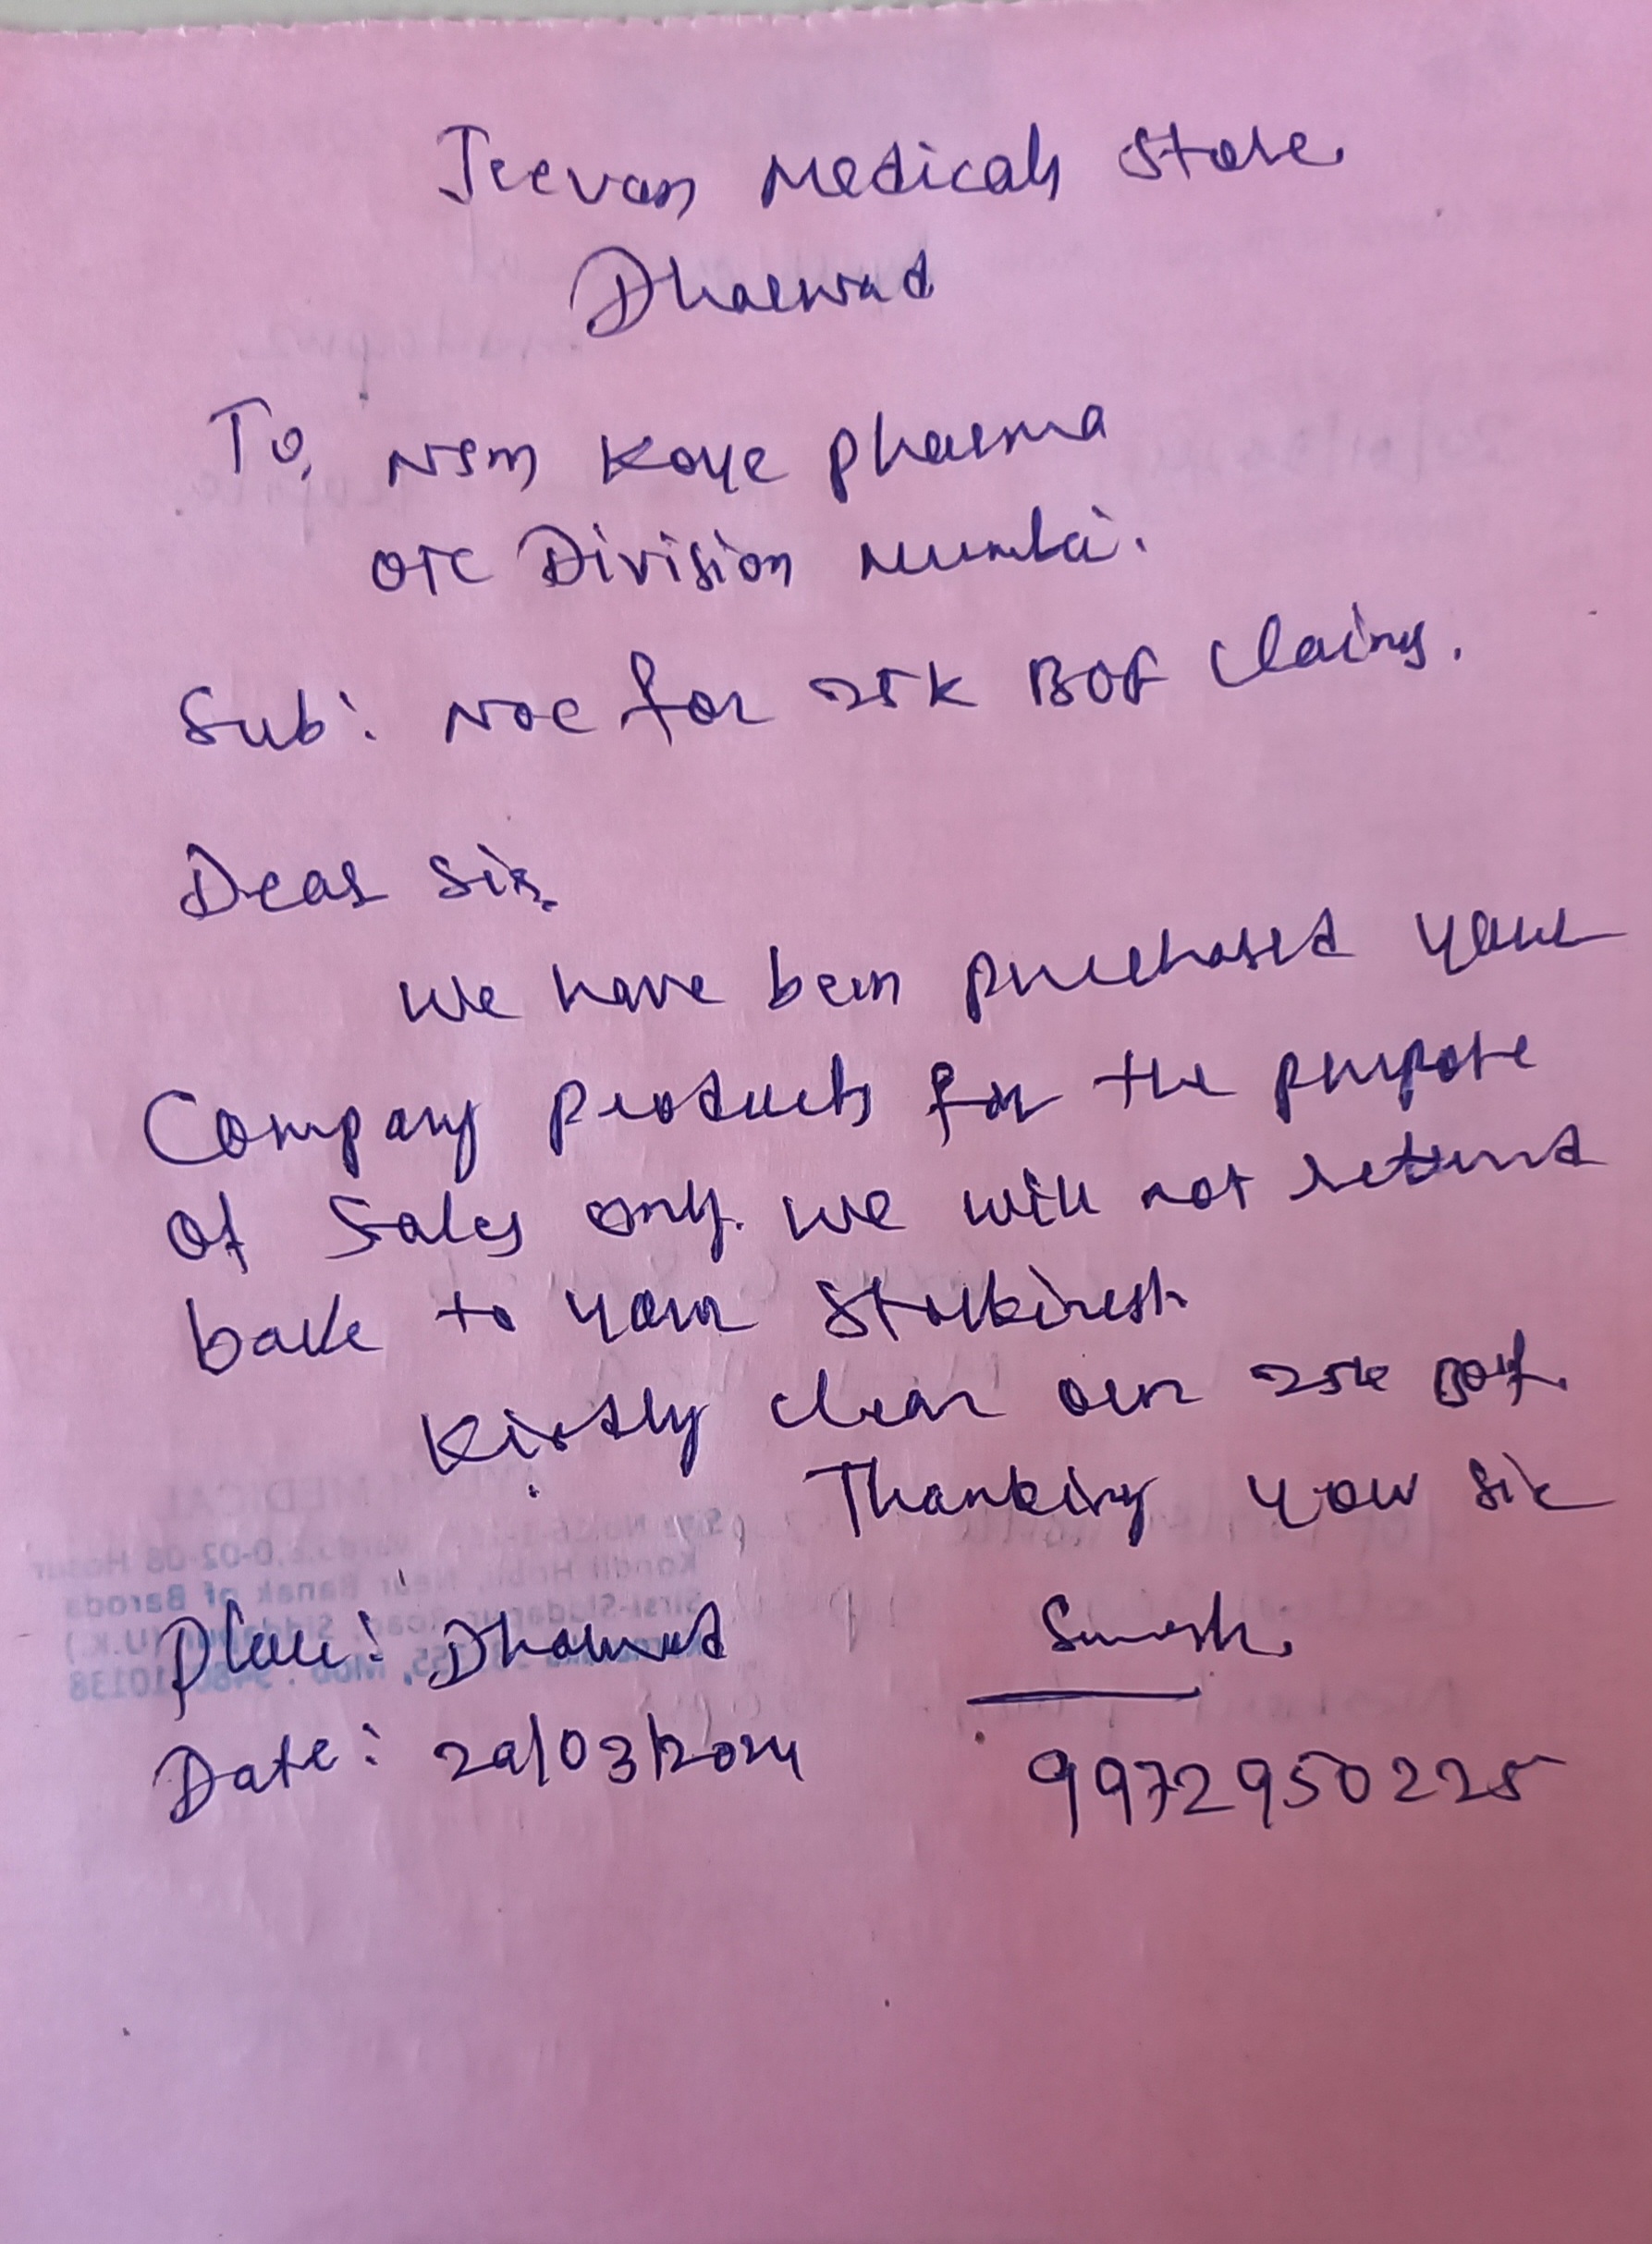 Jeevan Medicals Store
Dharwad
To, NSM Kaye pharma
OTC Division Mumbai.
Sub: NOC for 25K BOF Claims.
Dear Sir,
We have been purchased your
Company products for the purpose
of Sales only. We will not returnd
back to your Stockiest
Kindly clear our 25k BOF.
Thanking your Sir
Place: Dharwad
Date: /03/2024
9972950225